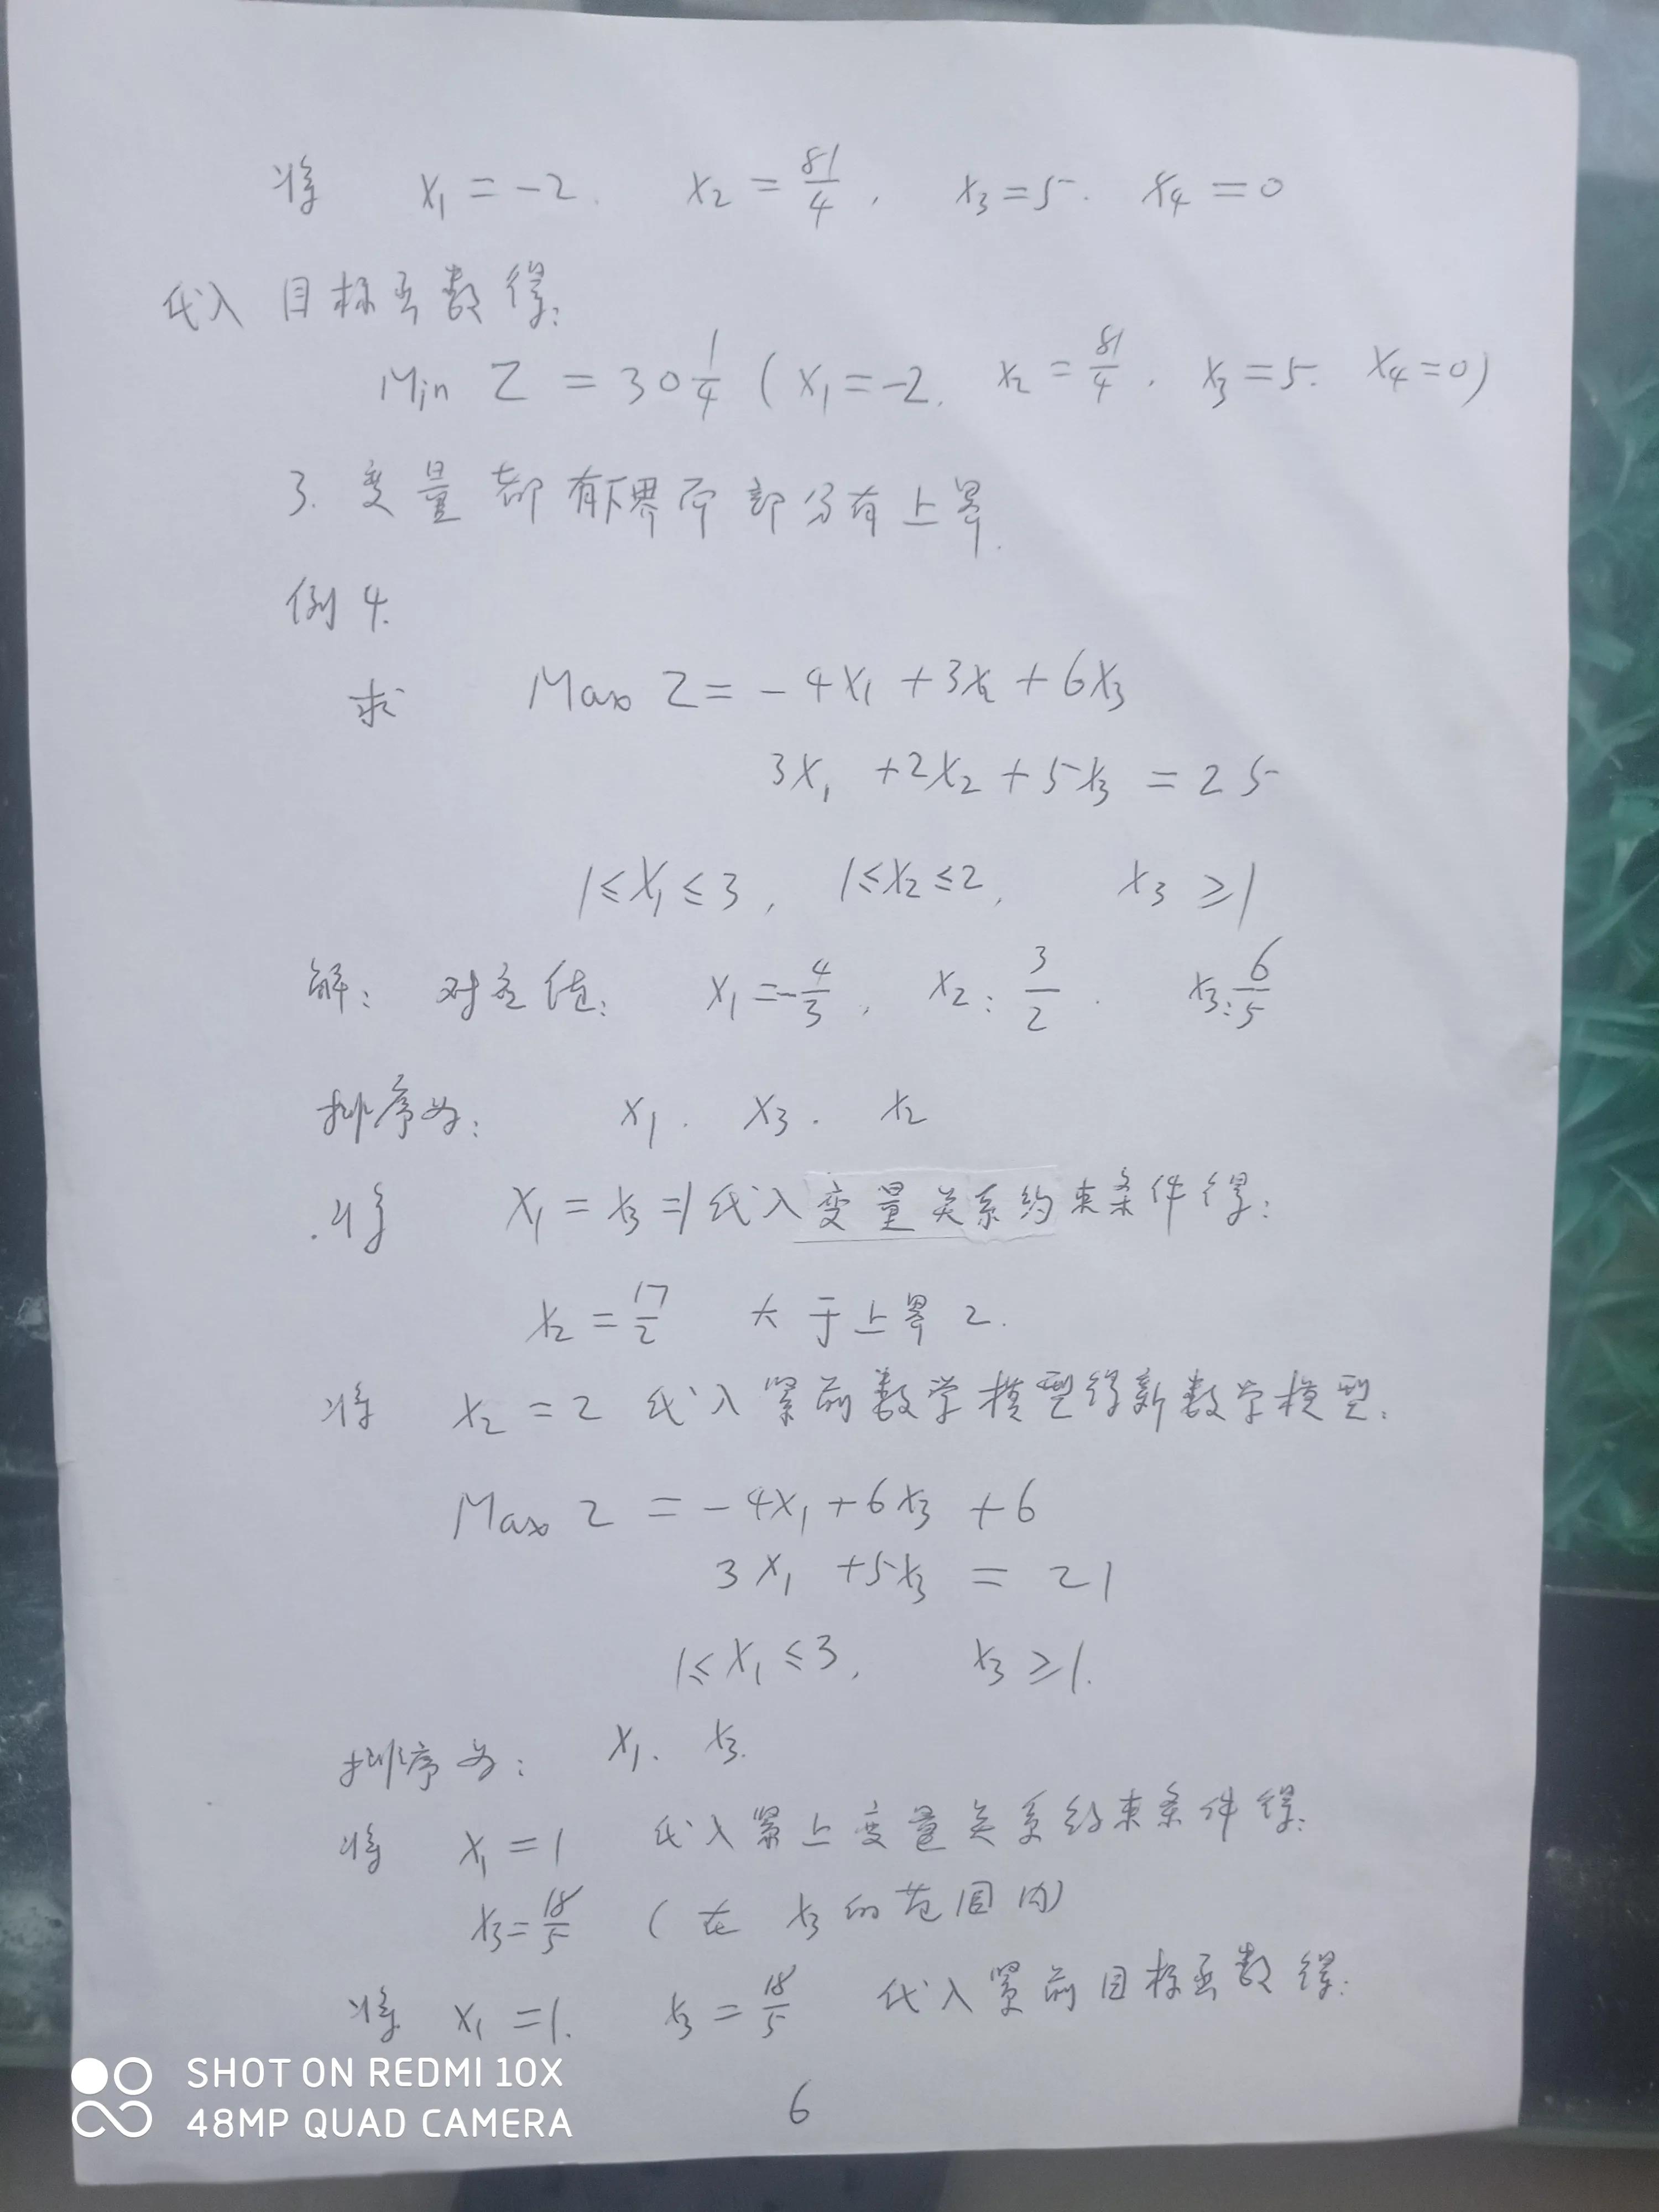 将 x₁=-2. x₂=81/4, x₃=5. x₄=0
代入目标函数得:
Min Z=30 1/4 (x₁=-2. x₂=81/4, x₃=5. x₄=0)
3. 变量都有下界而部分有上界.
例4.
求 Max Z=-4x₁+3x₂+6x₃
3x₁+2x₂+5x₃=25
1≤x₁≤3, 1≤x₂≤2, x₃≥1
解: 对应值: x₁=-4/3, x₂:3/2. x₃:6/5
排序为: x₁. x₃. x₂
.将 x₁=x₃=1代入变量关系约束条件得:
x₂=17/2 大于上界2.
将 x₂=2代入紧前数学模型得新数学模型:
Max Z=-4x₁+6x₃+6
3x₁+5x₃=21
1≤x₁≤3, x₃≥1.
排序为: x₁. x₃.
将 x₁=1 代入紧上变量关系约束条件得:
x₃=18/5 (在x₃的范围内)
将 x₁=1. x₃=18/5 代入紧前目标函数得:
SHOT ON REDMI 10X
48MP QUAD CAMERA
6